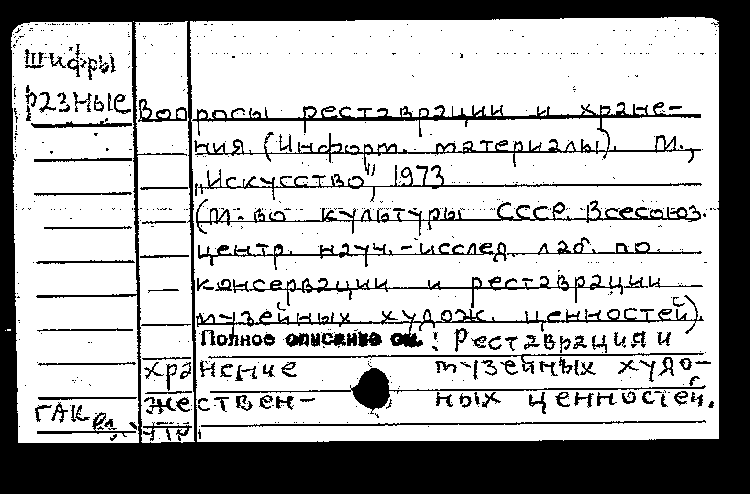 Шифры
разные
Вопросы реставрации и хране-
ния. (Информ. материалы). М.,
„Искусство", 1973
(М-во культуры СССР. Всесоюз.
центр. науч.-исслед. лаб. по
консервации и реставрации
музейных худож. ценностей).
Полное описание см.: Реставрация и
хранение музейных худо-
жествен- ных ценностей.
ГАК